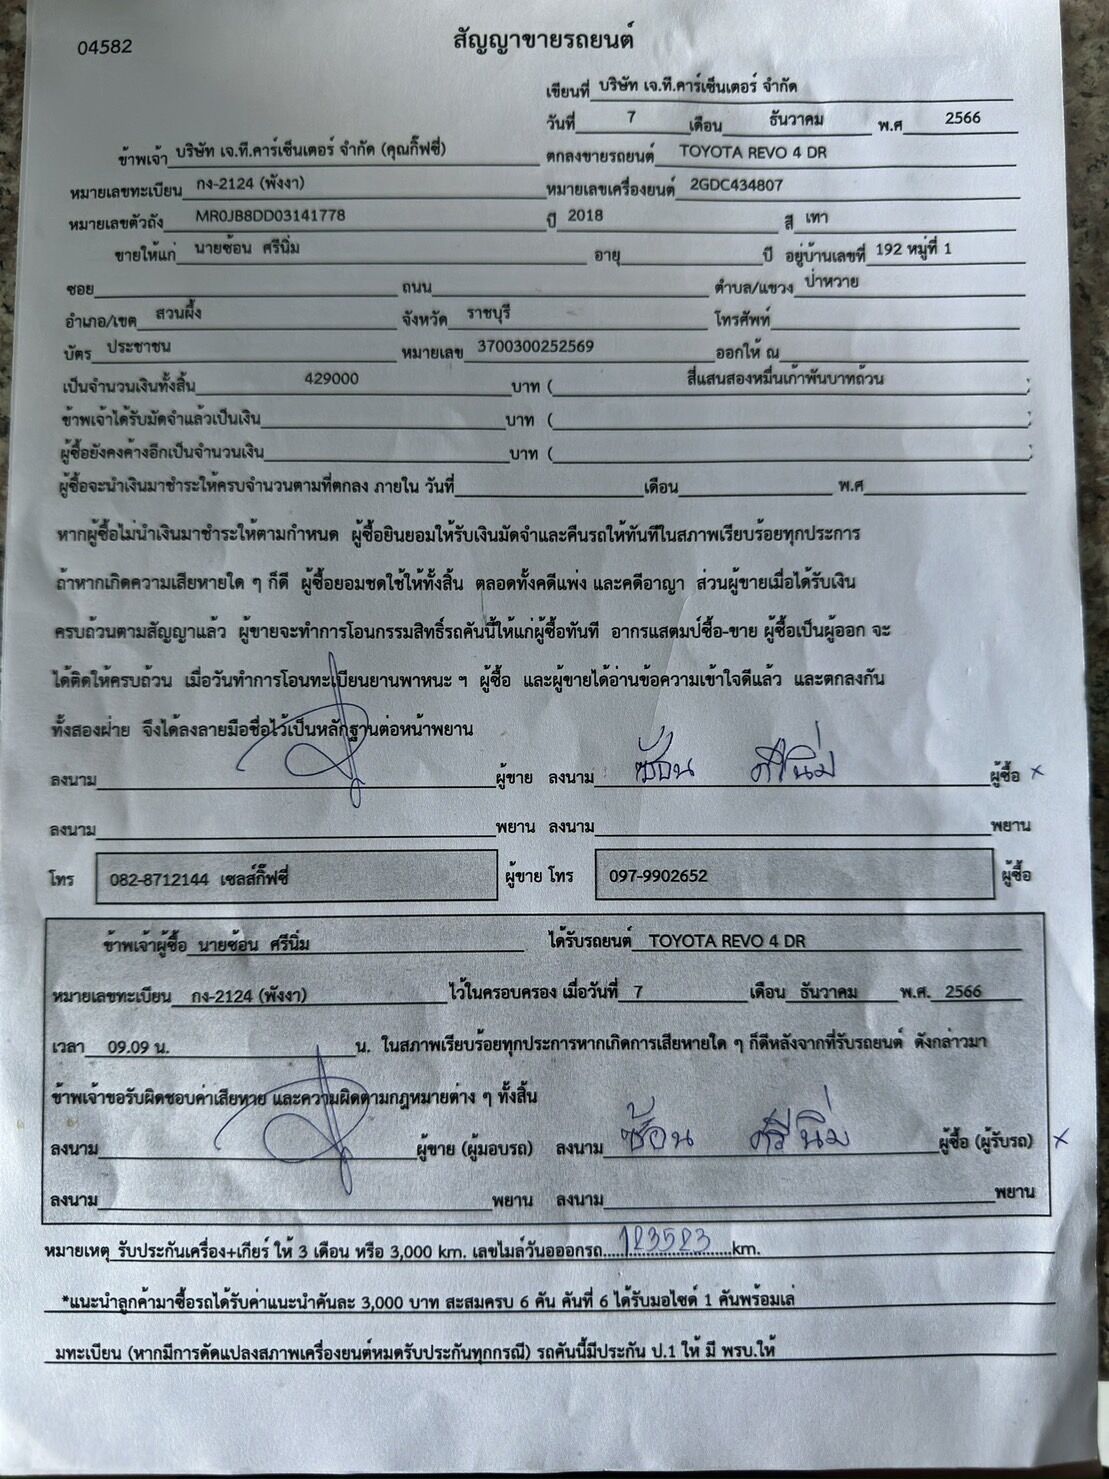 04582
สัญญาขายรถยนต์
เขียนที่ บริษัท เจ.ที.คาร์เซ็นเตอร์ จำกัด
วันที่ 7 เดือน ธันวาคม พ.ศ 2566
ข้าพเจ้า บริษัท เจ.ที.คาร์เซ็นเตอร์ จำกัด (คุณกิ๊ฟซี่) ตกลงขายรถยนต์ TOYOTA REVO 4 DR
หมายเลขทะเบียน กง-2124 (พังงา) หมายเลขเครื่องยนต์ 2GDC434807
หมายเลขตัวถัง MR0JB8DD03141778 ปี 2018 สี เทา
ขายให้แก่ นายซ้อน ศรีนิ่ม อายุ ปี อยู่บ้านเลขที่ 192 หมู่ที่ 1
ซอย ถนน ตำบล/แขวง ป่าหวาย
อำเภอ/เขต สวนผึ้ง จังหวัด ราชบุรี โทรศัพท์
บัตร ประชาชน หมายเลข 3700300252569 ออกให้ ณ
เป็นจำนวนเงินทั้งสิ้น 429000 บาท ( สี่แสนสองหมื่นเก้าพันบาทถ้วน )
ข้าพเจ้าได้รับมัดจำแล้วเป็นเงิน บาท ( )
ผู้ซื้อยังคงค้างอีกเป็นจำนวนเงิน บาท ( )
ผู้ซื้อจะนำเงินมาชำระให้ครบจำนวนตามที่ตกลง ภายใน วันที่ เดือน พ.ศ
หากผู้ซื้อไม่นำเงินมาชำระให้ตามกำหนด ผู้ซื้อยินยอมให้รับเงินมัดจำและคืนรถให้ทันทีในสภาพเรียบร้อยทุกประการ
ถ้าหากเกิดความเสียหายใด ๆ ก็ดี ผู้ซื้อยอมชดใช้ให้ทั้งสิ้น ตลอดทั้งคดีแพ่ง และคดีอาญา ส่วนผู้ขายเมื่อได้รับเงิน
ครบถ้วนตามสัญญาแล้ว ผู้ขายจะทำการโอนกรรมสิทธิ์รถคันนี้ให้แก่ผู้ซื้อทันที อากรแสตมป์ซื้อ-ขาย ผู้ซื้อเป็นผู้ออก จะ
ได้ติดให้ครบถ้วน เมื่อวันทำการโอนทะเบียนยานพาหนะ ฯ ผู้ซื้อ และผู้ขายได้อ่านข้อความเข้าใจดีแล้ว และตกลงกัน
ทั้งสองฝ่าย จึงได้ลงลายมือชื่อไว้เป็นหลักฐานต่อหน้าพยาน
ลงนาม ผู้ขาย ลงนาม ซ้อน ศรีนิ่ม ผู้ซื้อ x
ลงนาม พยาน ลงนาม พยาน
โทร 082-8712144 เซลส์กิ๊ฟซี่ ผู้ขาย โทร 097-9902652 ผู้ซื้อ
ข้าพเจ้าผู้ซื้อ นายซ้อน ศรีนิ่ม ได้รับรถยนต์ TOYOTA REVO 4 DR
หมายเลขทะเบียน กง-2124 (พังงา) ไว้ในครอบครอง เมื่อวันที่ 7 เดือน ธันวาคม พ.ศ. 2566
เวลา 09.09 น. น. ในสภาพเรียบร้อยทุกประการหากเกิดการเสียหายใด ๆ ก็ดีหลังจากที่รับรถยนต์ ดังกล่าวมา
ข้าพเจ้าขอรับผิดชอบค่าเสียหาย และความผิดตามกฎหมายต่าง ๆ ทั้งสิ้น
ลงนาม ผู้ขาย (ผู้มอบรถ) ลงนาม ซ้อน ศรีนิ่ม ผู้ซื้อ (ผู้รับรถ) x
ลงนาม พยาน ลงนาม พยาน
หมายเหตุ รับประกันเครื่อง+เกียร์ ให้ 3 เดือน หรือ 3,000 km. เลขไมล์วันอออกรถ.....123523.....km.
*แนะนำลูกค้ามาซื้อรถได้รับค่าแนะนำคันละ 3,000 บาท สะสมครบ 6 คัน คันที่ 6 ได้รับมอไซด์ 1 คันพร้อมเล่
มทะเบียน (หากมีการดัดแปลงสภาพเครื่องยนต์หมดรับประกันทุกกรณี) รถคันนี้มีประกัน ป.1 ให้ มี พรบ.ให้